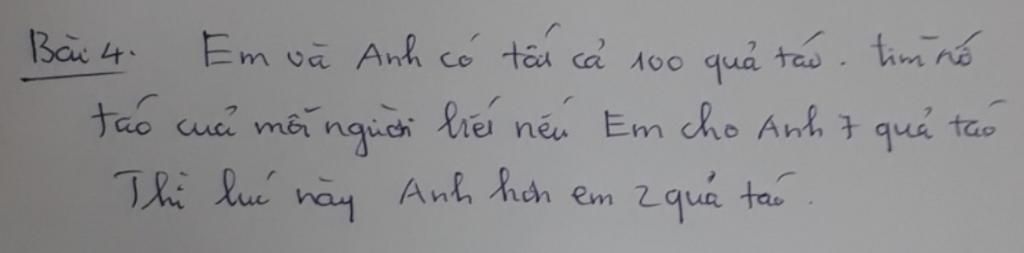 Bài 4. Em và Anh có tất cả 100 quả táo. tìm số
táo của mỗi người biết nếu Em cho Anh 7 quả táo
Thì lúc này Anh hơn em 2 quả táo.